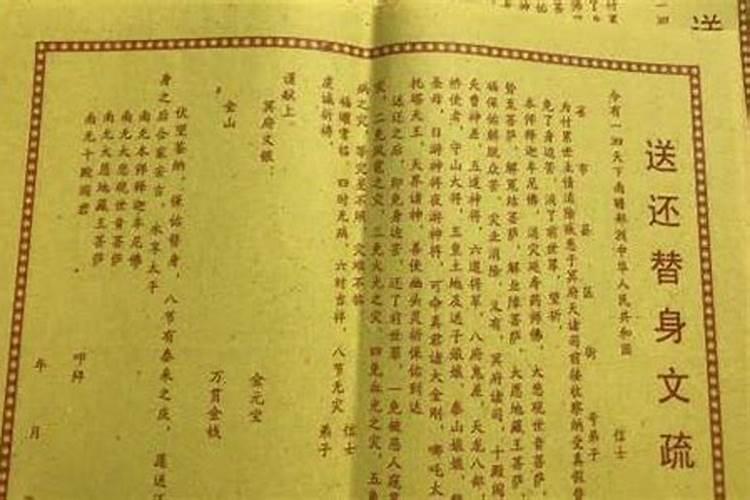 送还替身文疏
今有一四天下南赡部洲中华人民共和国 信士
省 市 县 区 街 号弟子
为付累世主债消除疾患于冥府天诸司前接收察纳受真假替
免了身边苦，消了前世罪，望祈
本师释迦牟尼佛，消灾延寿药师佛，大悲观世音菩萨
势至菩萨，解冤结菩萨，解业障菩萨，大愿地藏王菩萨，
福保佑解脱众苦，灾业消除，又有，冥府诸司，十殿阎
天曹神差，五道神将，六道将军，八府鬼差，天龙八部，
桥使者，守山大将，五皇土地及送子娘娘，泰山娘娘，
圣母，日游神将夜游神将，可命真君诸大金刚，哪吒太
托塔天王，天界诸神，善使幽头灵祈保佑到达
送还之后，即免身边苦，还了前世罪，一免被恶人寇
灾，二免风雹之灾，三免火光之灾，四免血光之灾，五鱼
病之灾，等灾是不顾，灾难不临
福曜常临 四时无病，六时吉祥，八节无灾 信士
虔诚祈祷， 弟子
谨献上
冥府文银， 金元宝
金山 万贯金钱
伏望鉴纳，保佑替身，八节有泰来之庆，愿送还
身之后合家安吉，永享太平
南无本师释迦牟尼佛
南无大悲观世音菩萨
南无大愿地藏王菩萨
南无十殿阎君
叩拜
年 月